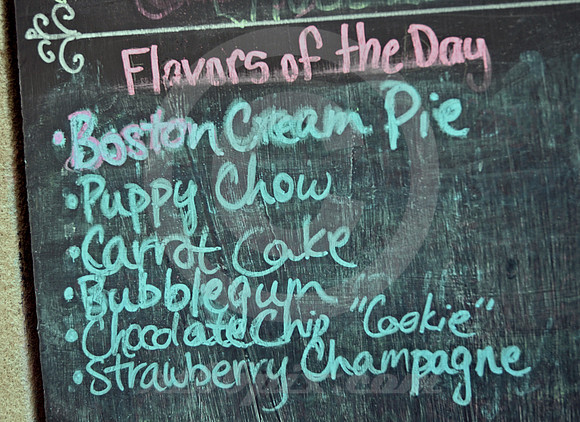 Flavors of the Day
• Boston Cream Pie
• Puppy Chow
• Carrot Cake
• Bubblegum
• Chocolate Chip "Cookie"
• Strawberry Champagne